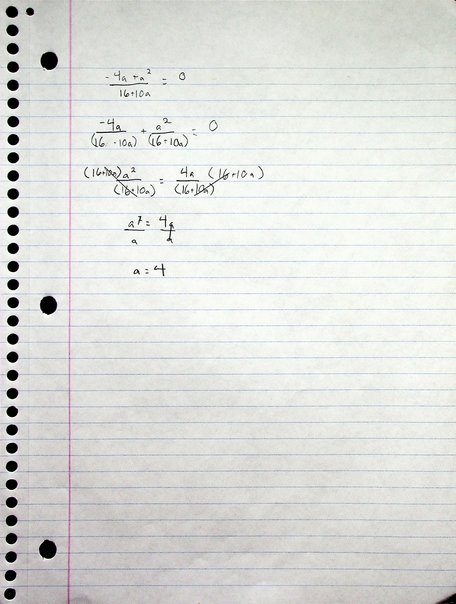 (-4a + a²)/(16+10a) = 0
-4a/(16 - 10a) + a²/(16+10a) = 0
(16+10a)a²/(16+10a) = 4a/(16+10a) (16+10a)
a²/a = 4a/a
a = 4